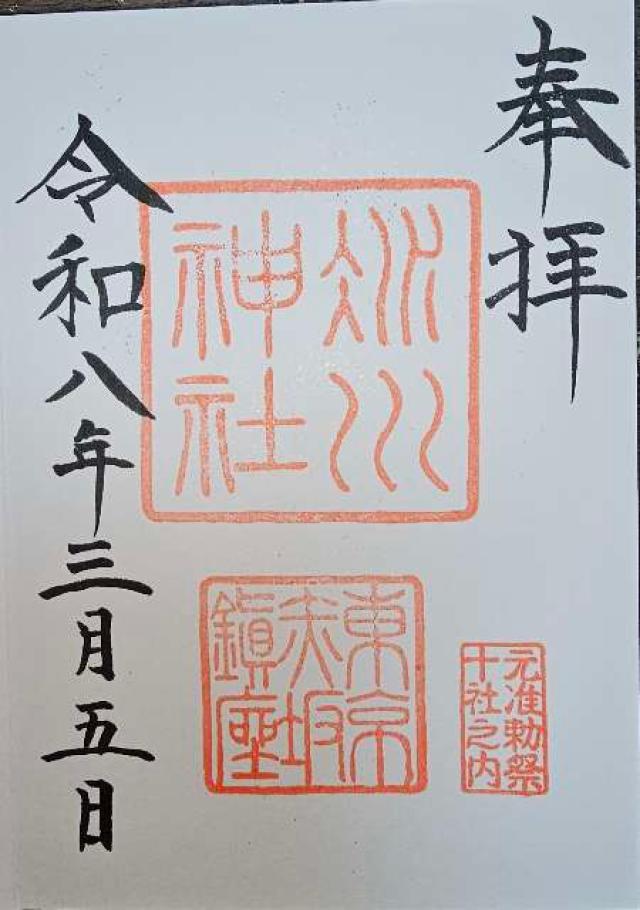 奉拝
冰川
神社
元准勅祭
十社之内
東京
赤坂
鎭座
令和八年三月五日